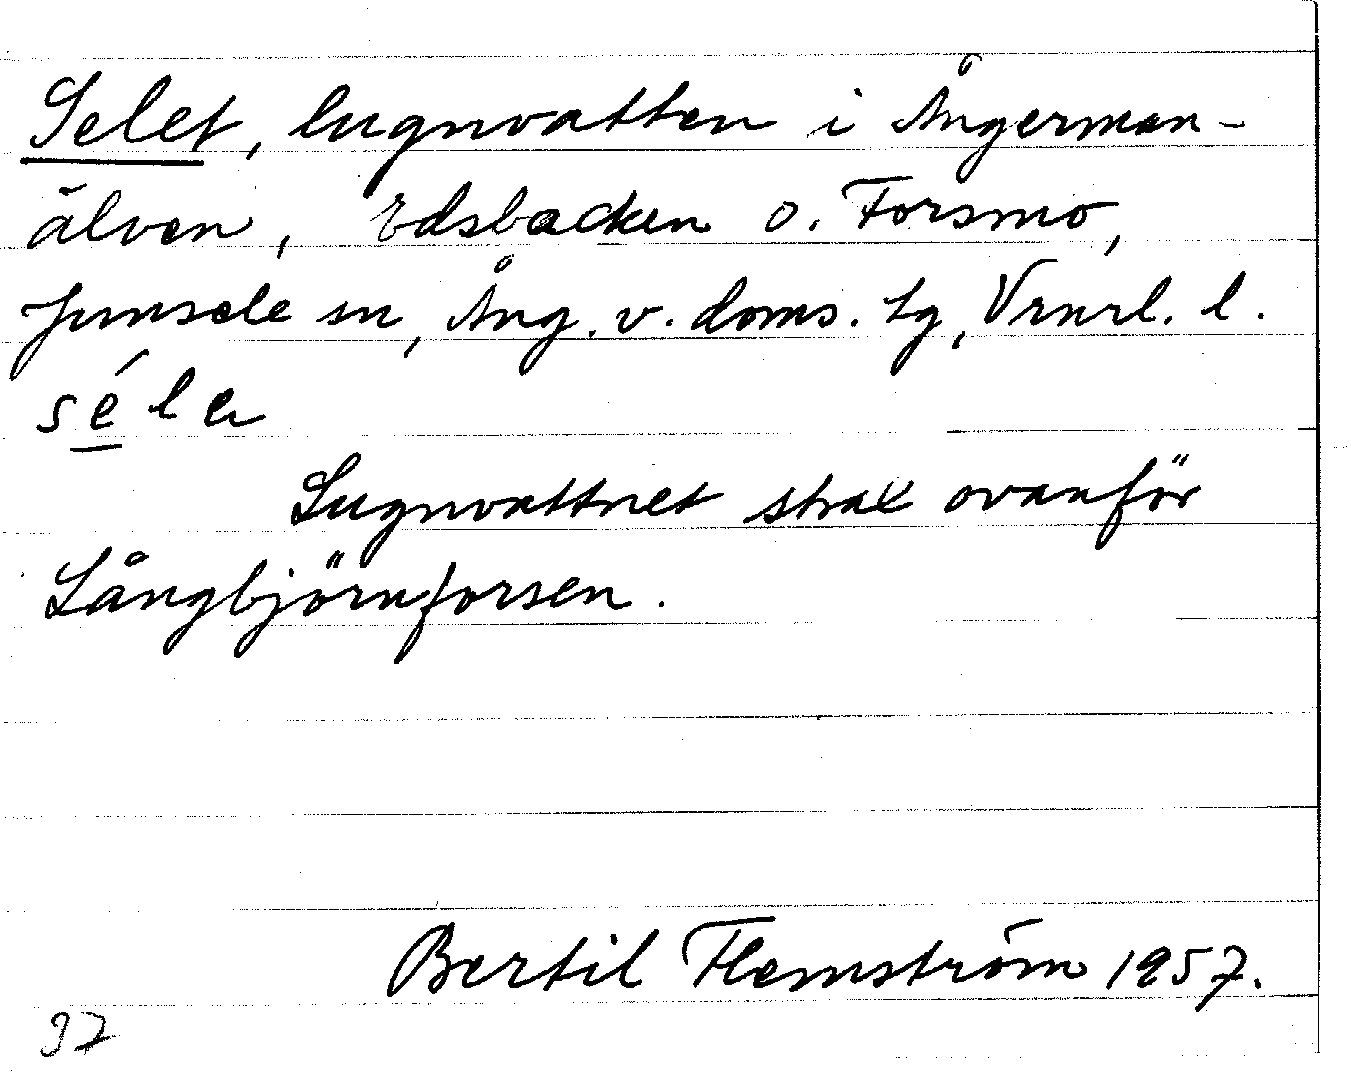 Selet, lugnvatten i Ångerman-
älven, Edsbacken o. Forsmo,
Junsele sn, Ång. v. doms. Lg, Vrnrl. l.
séla
Lugnvattnet strax ovanför
Långbjörnforsen.
Bertil Flemström 1957.
37